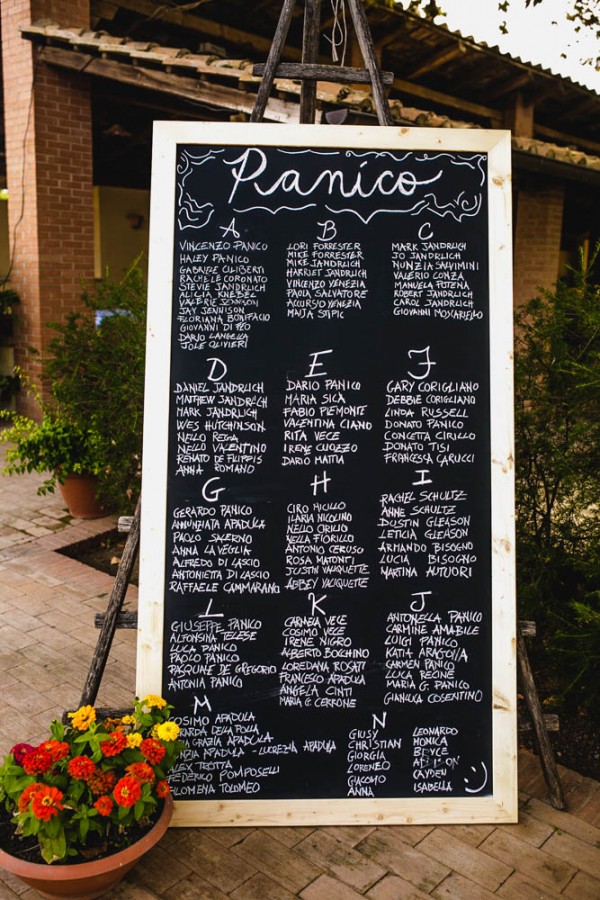 Panico
A
VINCENZO PANICO
HALEY PANICO
GABRIELE CILIBERTI
RACHELE CORONATO
STEVIE JANDRLICH
ALICIA KNEBEL
VALERIE JENNISON
JAY JENNISON
FLORIANA BONIFACIO
GIOVANNI DI
DARIO LANGELLA
JOLE OLIVIERI
B
LORI FORRESTER
MIKE FORRESTER
MIKE JANDRLICH
HARRIET JANDRLICH
VINCENZO VENEZIA
PAOLA SALVATORE
ACCURSIO VENEZIA
MAJA STIPIC
C
MARK JANDRLICH
JO JANDRLICH
NUNZIA SALVIMINI
VALERIO CONZA
MANUELA PUTENA
ROBERT JANDRLICH
CAROL JANDRLICH
GIOVANNI MOSCARIELLO
D
DANIEL JANDRLICH
MATTHEW JANDRLICH
MARK JANDRLICH
WES HUTCHINSON
NELLO
NELLO VALENTINO
RENATO DE FILIPPIS
ANNA ROMANO
E
DARIO PANICO
MARIA SICA
FABIO PIEMONTE
VALENTINA CIANO
RITA VECE
IRENE CUOZZO
DARIO MATTIA
F
GARY CORIGLIANO
DEBBIE CORIGLIANO
LINDA RUSSELL
DONATO PANICO
CONCETTA CIRILLO
DONATO TISI
FRANCESCA CARUCCI
G
GERARDO PANICO
ANNUNZIATA APADULA
PAOLO SALERNO
ANNA LA VEGLIA
ALFREDO DI LASCIO
ANTONIETTA DI LASCIO
RAFFAELE CAMMARANO
H
CIRO HICILLO
ILARIA NICOLINO
NELLO CIRILLO
NELLA FIORILLO
ANTONIO CERUSO
ROSA MATONTI
JUSTIN VALIQUETTE
ABBEY VALIQUETTE
I
RACHEL SCHULTZ
ANNE SCHULTZ
DUSTIN GLEASON
LETICIA GLEASON
ARMANDO BISOGNO
LUCIA BISOGNO
MARTINA AUTUORI
L
GIUSEPPE PANICO
ALFONSINA TELESE
LUCA PANICO
PAOLO PANICO
PASQUALE DE GREGORIO
ANTONIA PANICO
K
CARMELA VECE
COSIMO VECE
IRENE NIGRO
ALBERTO BOCHINO
LOREDANA ROSATI
FRANCESCO APADULA
ANGELA CINTI
MARIA G. CERRONE
J
ANTONELLA PANICO
CARMINE AMABILE
LUIGI PANICO
KATIA ARAGONA
CARMEN PANICO
LUCA RECINE
MARIA G. PANICO
GIANLUCA COSENTINO
M
COSIMO APADULA
DELLA POLLA
GRAZIA APADULA
APADULA - LUCREZIA APADULA
ALEX TROTTA
FEDERICO POMPOSELLI
FILOMENA TOLOMEO
N
GIUSY
CHRISTIAN
GIORGIA
LORENZO
GIACOMO
ANNA
LEONARDO
MONICA
BRYCE
ADDISON
CAYDEN
ISABELLA